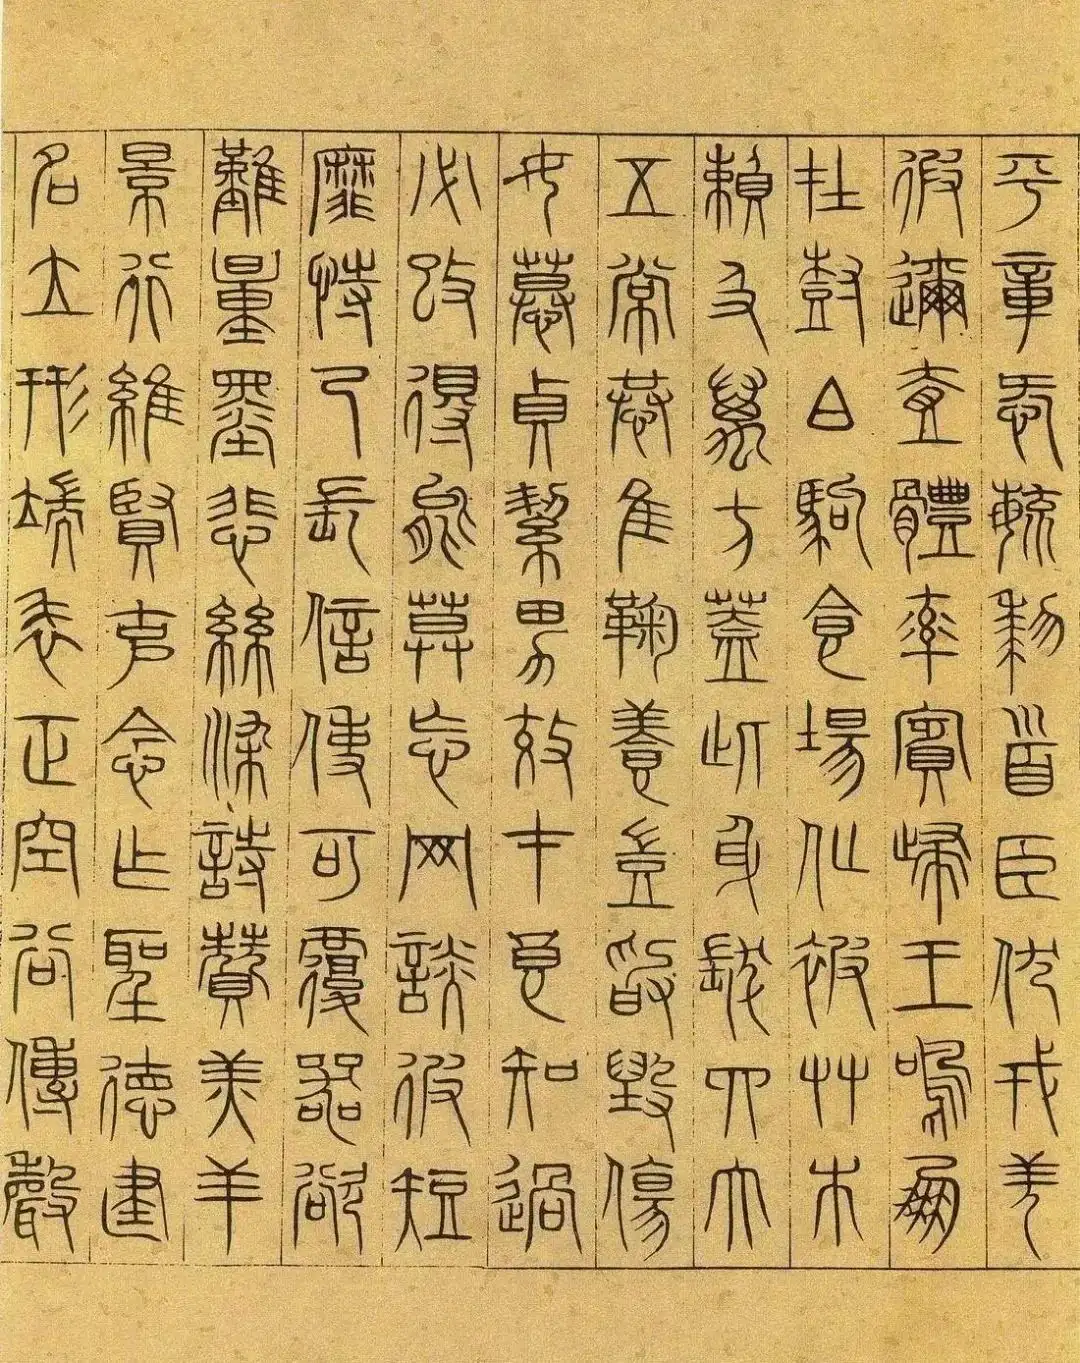 平章愛育黎首臣伏戎羌
遐邇壹體率賓歸王鳴鳳
在樹白駒食場化被草木
賴及萬方蓋此身髮四大
五常恭惟鞠養豈敢毀傷
女慕貞絜男效才良知過
必改得能莫忘罔談彼短
靡恃己長信使可覆器欲
難量墨悲絲染詩贊羔羊
景行維賢克念作聖德建
名立形端表正空谷傳聲